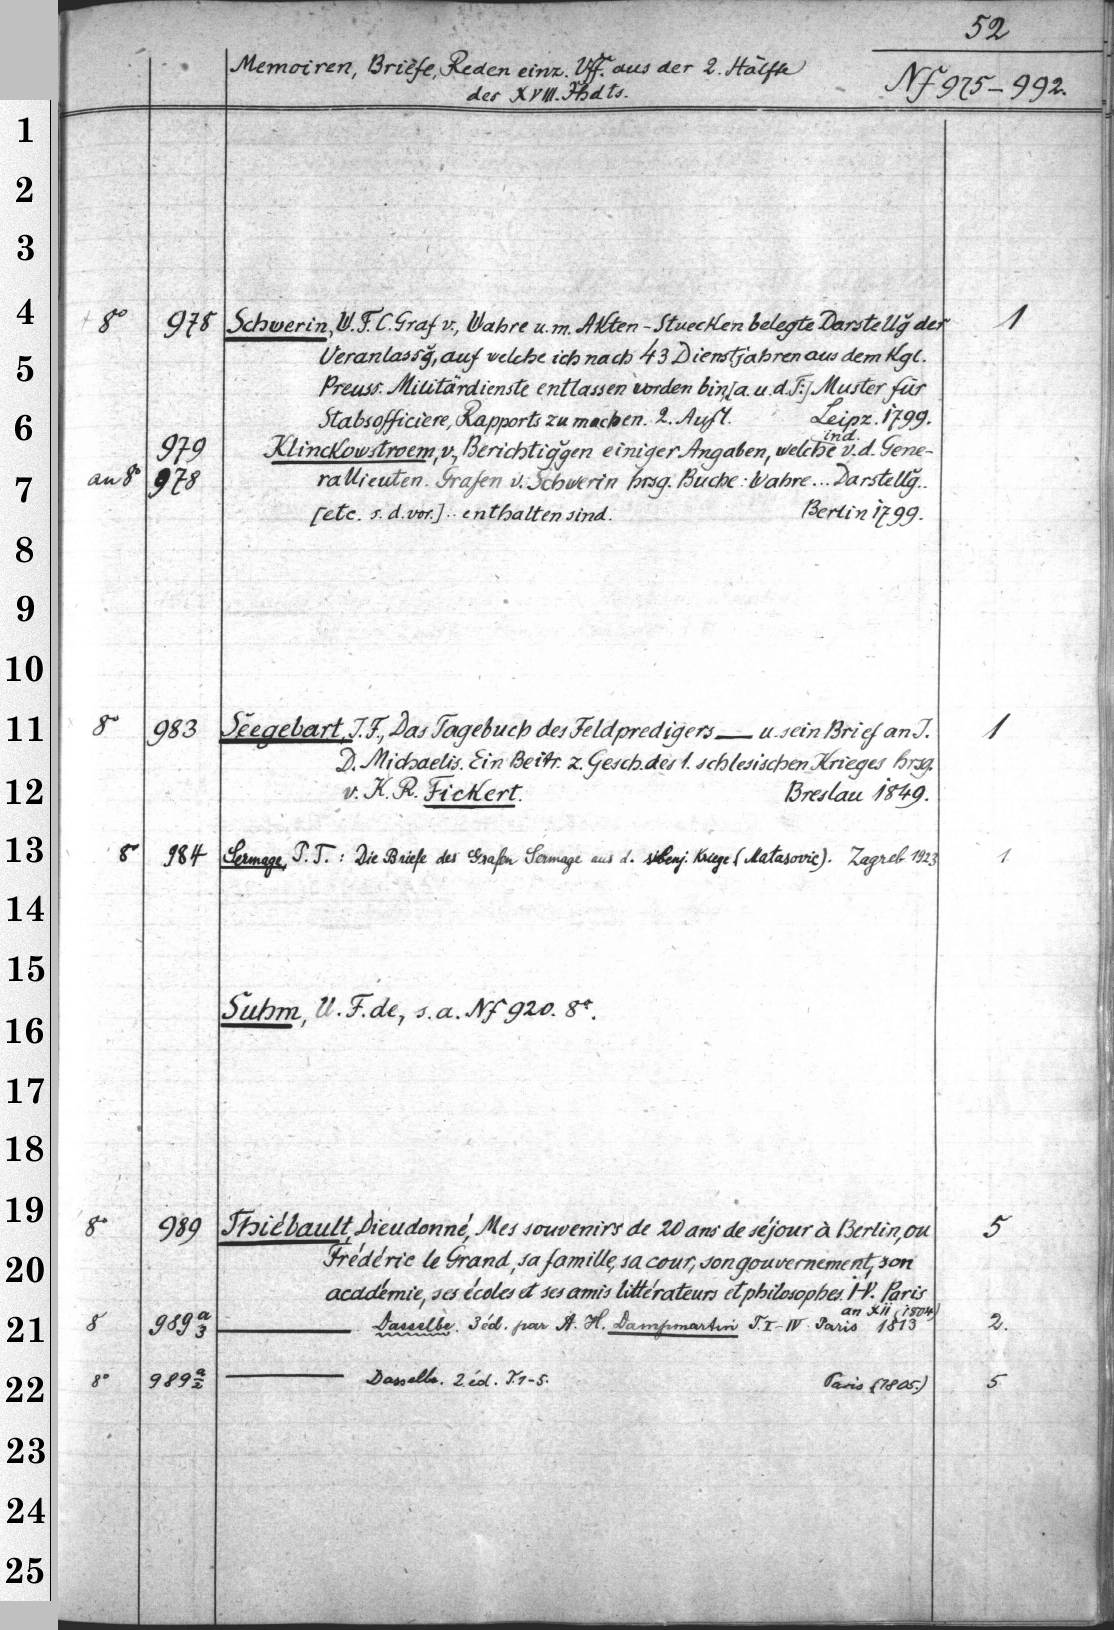 52
Memoiren, Briefe, Reden einz. Vff. aus der 2. Hälfte
des XVIII. Jhdts.
Nf 975-992.
1
2
3
4
8° 978 Schwerin, W. F. C. Graf v., Wahre u. m. Akten-Stuecken belegte Darstellg̃ der 1
5
Veranlassg̃, auf welche ich nach 43 Dienstjahren aus dem Kgl.
Preuss. Militärdienste entlassen worden bin, [a. u. d. T:] Muster für
6
Stabsofficiere, Rapports zu machen. 2. Aufl. Leipz. 1799.
979 Klinckowstroem, v., Berichtigg̃en einiger Angaben, welche ind. v. d. Gene-
7
an 8° 978 rallieuten. Grafen v. Schwerin hrsg. Buche: Wahre... Darstellg̃..
[etc. s. d. vor.] .. enthalten sind. Berlin 1799.
8
9
10
11
8° 983 Seegebart, J. F., Das Tagebuch des Feldpredigers — u. sein Brief an J. 1
D. Michaelis. Ein Beitr. z. Gesch. des 1. schlesischen Krieges hrsg.
12
v. K. R. Fickert. Breslau 1849.
13
8° 984 Sermage, P. T.: Die Briefe des Grafen Sermage aus d. siebenj. Kriege (Matasovic). Zagreb 1923 1
14
15
16
Suhm, U. F. de, s. a. Nf 920. 8°.
17
18
19
8° 989 Thiébault, Dieudonné, Mes souvenirs de 20 ans de séjour à Berlin, ou 5
20
Frédéric le Grand, sa famille, sa cour, son gouvernement, son
académie, ses écoles et ses amis littérateurs et philosophes. I-V. Paris
an XII (1804)
21
8° 989 a/3 — Dasselbe. 3 éd. par A. H. Dampmartin T. I-IV Paris 1813 2.
22
8° 989 a/2 — Dasselbe. 2 éd. T. 1-5. Paris (1805.) 5
23
24
25